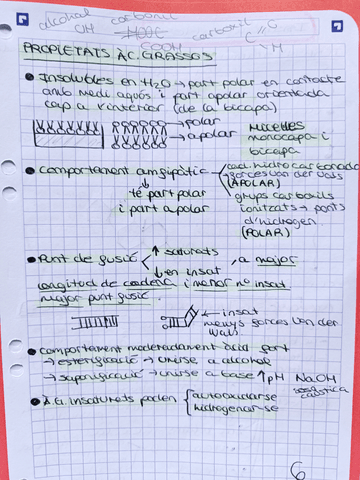 alcohol carbonil carboxil C=C
OH HOOC
COOH
PROPIETATS ÀC. GRASSOS
Insolubles en H2O → part polar en contacte
amb medi aquós i part apolar orientada
cap a l'interior (de la bicapa)
→ polar
→ apolar
Micel·les
monocapa i
bicapa
Comportament amfipàtic
cad. hidrocarbonada
forces van der Vals
(APOLAR)
té part polar
i part apolar
grups carboxils
ionitzats → ponts
d'hidrogen
(POLAR)
Punt de fusió
↑ saturats
↓ en insat
, a major
longitud de cadena i menor nº insat
major punt fusió.
→ insat
menys forces van der
Wals
Comportament moderadament àcid fort
→ esterificació → unirse a alcohol
→ saponificació → unirse a base ↑pH NaOH
sosa
càustica
À.G. insaturats poden
autooxidarse
hidrogenar-se
6